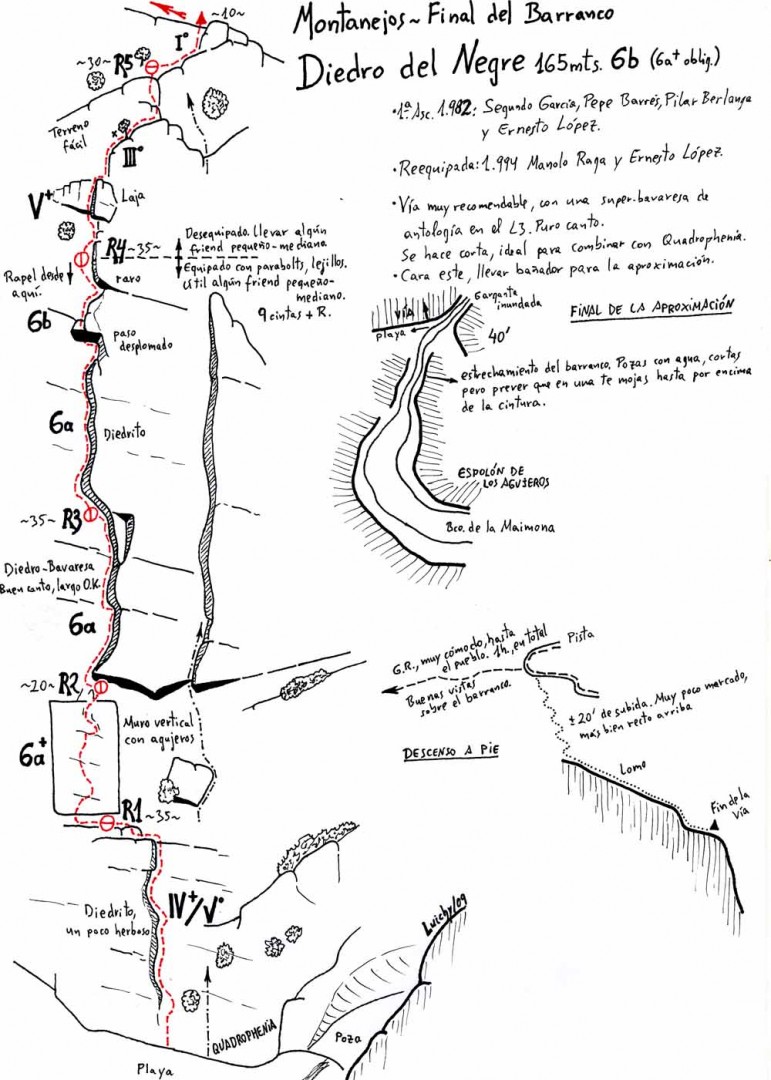 Montanejos ~ Final del Barranco
Diedro del Negre 165mts. 6b (6a+ oblig.)
• 1ª Asc. 1.982: Segundo García, Pepe Barrés, Pilar Berlanga
y Ernesto López.
• Reequipada: 1.994 Manolo Raga y Ernesto López.
• Vía muy recomendable, con una super-bavaresa de
antología en el L3. Puro canto.
Se hace corta, ideal para combinar con Quadrophenia.
• Cara este, llevar bañador para la aproximación.
~10~
I°
~30~ R5
Terreno
fácil
III°
V+
Laja
R4 ~35~
Desequipado. Llevar algún
friend pequeño-mediano
Equipado con parabolts, lejillos.
Útil algún friend pequeño-
mediano.
9 cintas + R.
Rapel desde
aquí.
raro
6b
paso
desplomado
6a
Diedrito
~35~ R3
Diedro-Bavaresa
Buen canto, largo O.K.
6a
~20~ R2
Muro vertical
con agujeros
6a+
R1 ~35~
IV+/V°
Diedrito,
un poco herboso
QUADROPHENIA
Playa
Poza
Luichy/09
FINAL DE LA APROXIMACIÓN
VÍA
Playa
Garganta
inundada
40'
estrechamiento del barranco. Pozas con agua, cortas
pero prever que en una te mojas hasta por encima
de la cintura.
ESPOLÓN DE
LOS AGUJEROS
Bco. de la Maimona
G.R., muy cómodo, hasta
el pueblo. 1h. en total
Buenas vistas
sobre el barranco.
Pista
± 20' de subida. Muy poco marcado,
más bien recto arriba
DESCENSO A PIE
Lomo
Fin de la
vía